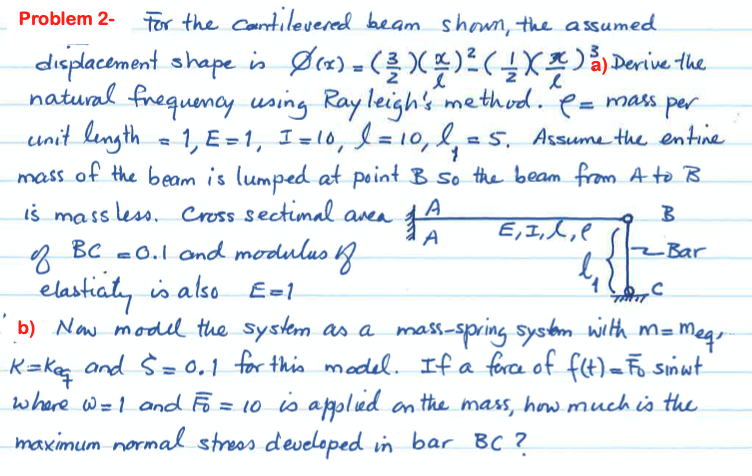 Problem 2- For the cantilevered beam shown, the assumed
displacement shape is Ø(x) = (3/2)(x/l)² - (1/2)(x/l)³ a) Derive the
natural frequency using Rayleigh's method. ρ = mass per
unit length = 1, E=1, I=10, l=10, l₁=5. Assume the entire
mass of the beam is lumped at point B so the beam from A to B
is massless. Cross sectimal area
of BC = 0.1 and modulus of
elasticity is also E=1
A
A
B
E, I, l, ρ
l₁
Bar
C
b) Now model the system as a mass-spring system with m=meq,
K=Keq and ζ=0.1 for this model. If a force of f(t)=F̄₀ sinωt
where ω=1 and F̄₀=10 is applied on the mass, how much is the
maximum normal stress developed in bar BC?